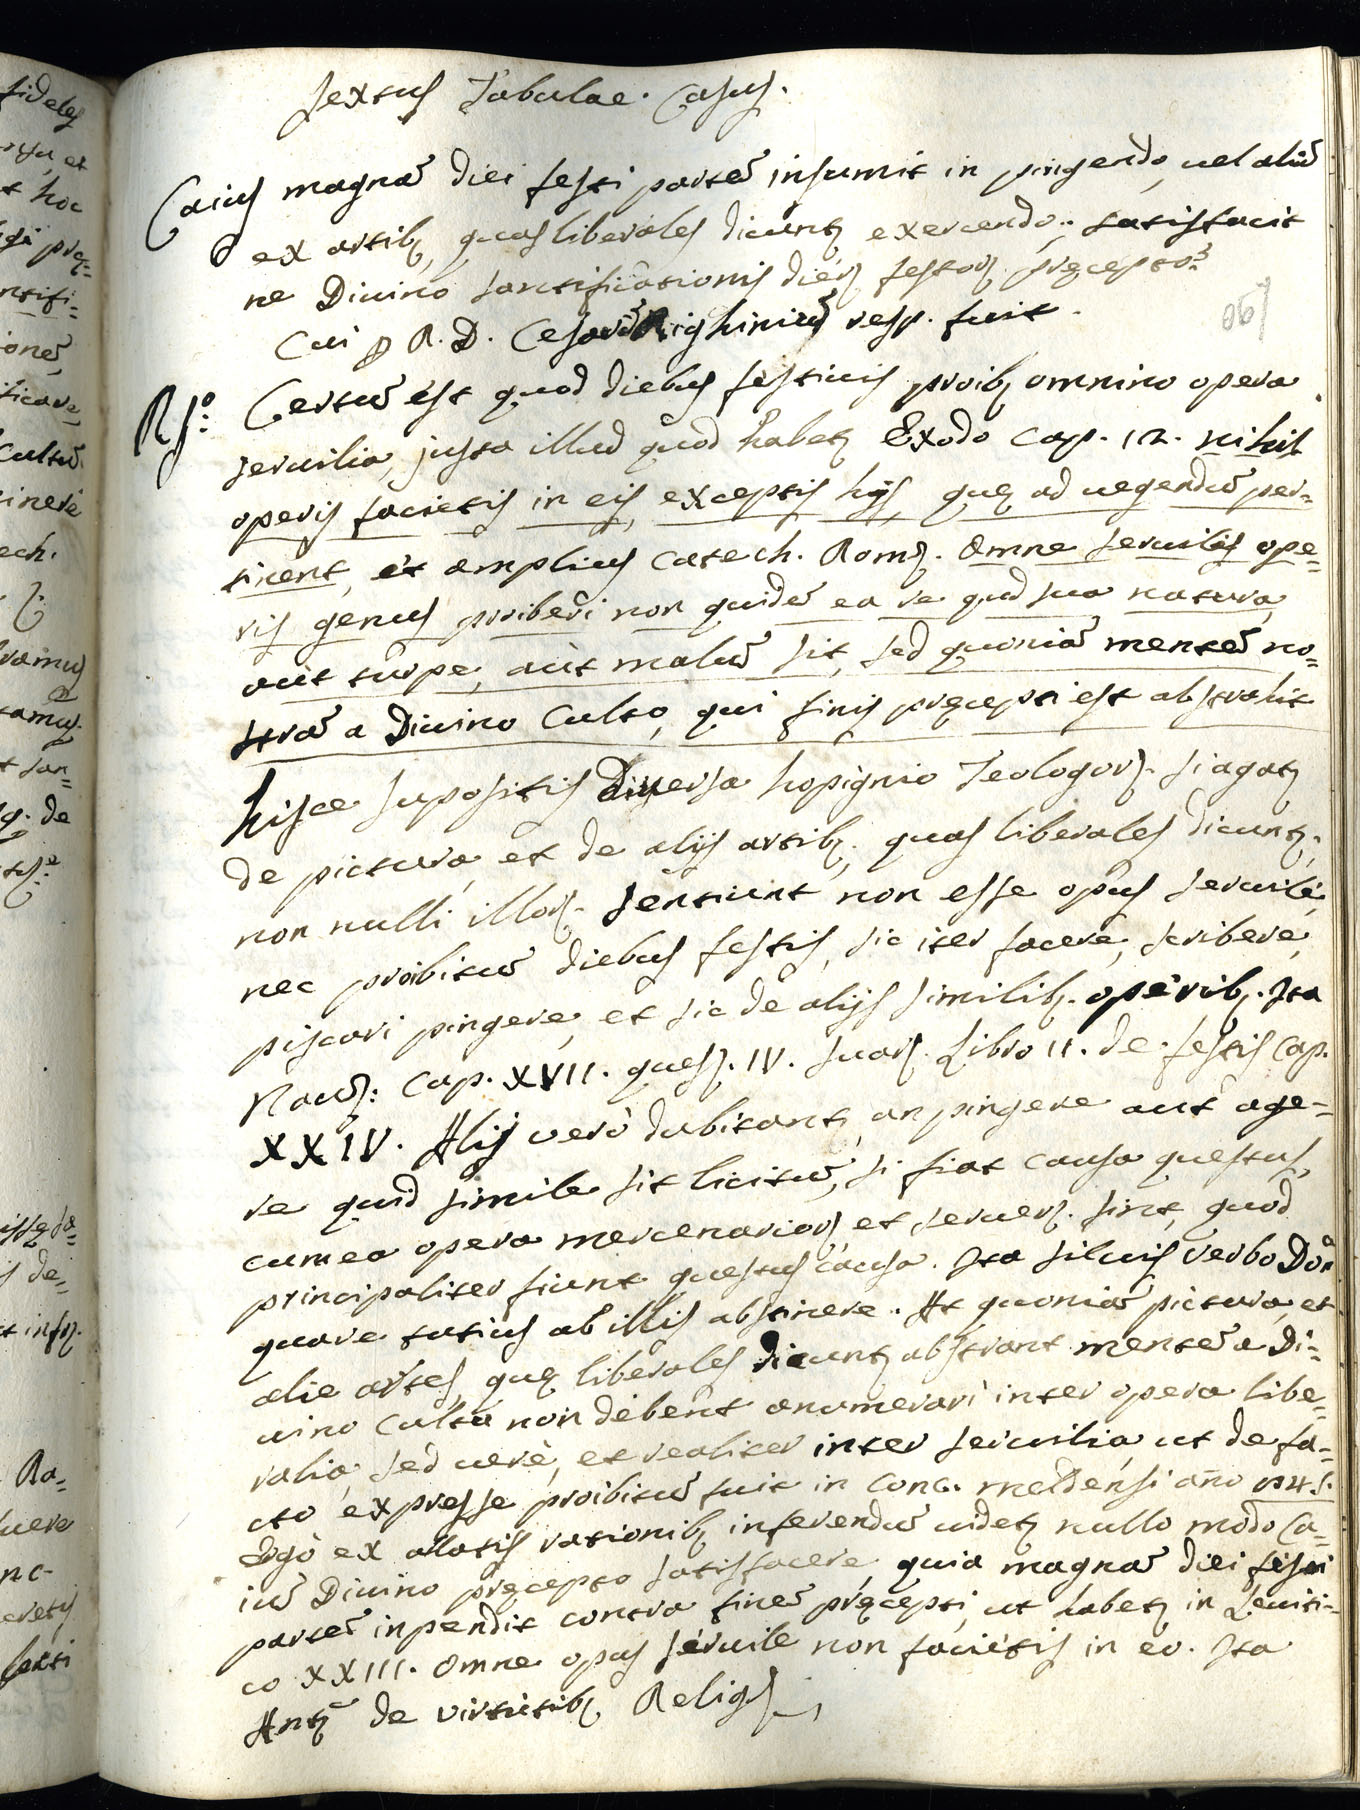 Sextus Tabulae. Casus.
Caius magnã diei festi partẽ insumit in pingendo, uel aliũ
ex artibꝫ, quas liberales dicuntꝫ exercendo: satisfacit
ne Diuino santificationis dierꝫ festorꝫ pręcepto?
Cui ꝑ R. D. Cesarẽ Righiniũ resp. fuit.
Rsº: Certũ est quod diebus festiuis proibꝫ omnino opera
seruilia, justa illud quod habetꝫ Exodo cap. 12. nihil
operis facietis in eis, exceptis hijs, quę ad uegendũ per=
tinent, et amplius Catech. Romꝫ. Omne seruilis ope=
ris genus proiberi non quidẽ ea re quod sua natura,
aut turpe, aut malũ sit, sed quoniã mentẽ no=
strã a Diuino Culto, qui finis pręcepti est abstrahit
hisce supositis Diuersa hopignio Teologorꝫ. si agatꝫ
de pictura, et de alijs artibꝫ. quas liberales dicuntꝫ.
non nulli illorꝫ. sentiunt non esse opus seruile,
nec proibitũ diebus festis, sic iter facere, scribere,
piscari pingere, et sic de alijs similibꝫ. operibꝫ. Ita
Nauꝫ: cap. XVII. quesꝫ. IV. Suarꝫ. Libro II. de festis cap.
XXIV. Alij verò dubitant, an pingere aut age=
re quid simile sit licitũ, si fiat causa questus,
cum ea opera mercenariorꝫ, et seruerꝫ. sint, quod
principaliter fiunt questus causa. Ita siluis verbo Doñ
quare tutius ab illis abstinere. At quoniã pictura, et
alie artes, quę liberales dicuntꝫ abstrant mentẽ a Di=
uino Culta non debent anumerari inter opera libe=
ralia, sed uere, et realiter inter seruilia, ut de fa=
cto expresse proibitũ fuit in Conc. meldensi año
Ergo ex alatis rationibꝫ inferendũ uidetꝫ nullo modo Ca=
iũ Diuino pręcepto satisfacere, quia magnã diei festi
partẽ inpendit contra finẽ pręcepti, ut habetꝫ in Leuiti=
co XXIII. Omne opus seruile non facietis in eo. Ita
Antꝫ de virtutibꝫ Religꝫ.